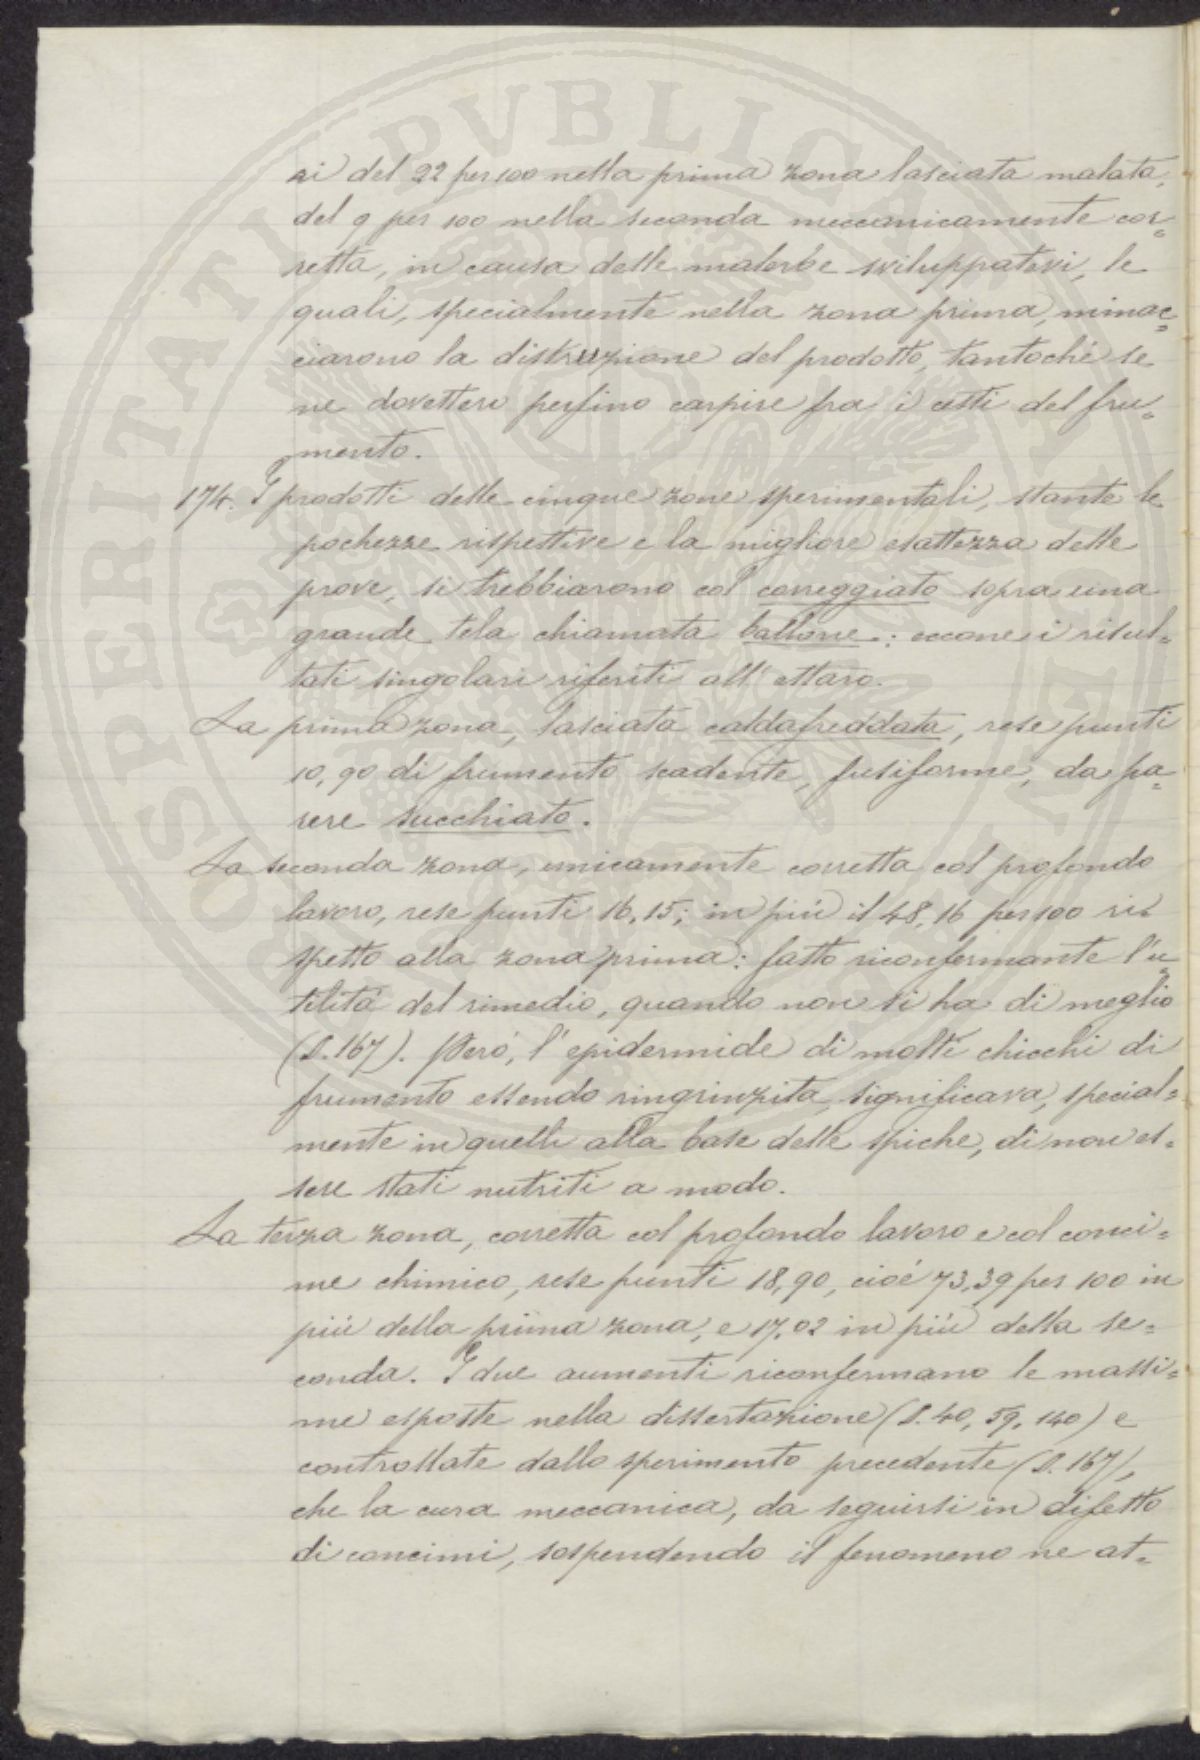 ri del 22 per 100 nella prima zona lasciata malata,
del 9 per 100 nella seconda meccanicamente cor=
retta, in causa delle malerbe sviluppatevi, le
quali, specialmente nella zona prima, minac=
ciarono la distruzione del prodotto, tantoché se
ne dovettero perfino carpire fra i cesti del fru=
mento.
174. I prodotti delle cinque zone sperimentali, stante le
pochezze rispettive e la migliore esattezza delle
prove, si trebbiarono col correggiato sopra una
grande tela chiamata ballone: eccone i risul=
tati singolari riferiti all'ettaro.
La prima zona, lasciata caldafreddata, rese punti
10,90 di frumento scadente, fusiforme, da pa=
rere succhiato.
La seconda zona, unicamente corretta col profondo
lavoro, rese punti 16,15; in più il 48,16 per 100 ri=
spetto alla zona prima: fatto riconfermante l'u=
tilità del rimedio, quando non si ha di meglio
(S. 167). Però, l'epidermide di molti chicchi di
frumento essendo ringrinzita, significava, special=
mente in quelli alla base delle spiche, di non es=
sere stati nutriti a modo.
La terza zona, corretta col profondo lavoro e col conci=
me chimico, rese punti 18,90, cioè 73,39 per 100 in
più della prima zona, e 17,02 in più della se=
conda. I due aumenti riconfermano le massi=
me esposte nella dissertazione (S. 40, 59, 140) e
controllate dallo sperimento precedente (S. 167),
che la cura meccanica, da seguirsi in difetto
di concimi, sospendendo il fenomeno ne at=
SPERITATI PVBLICAE